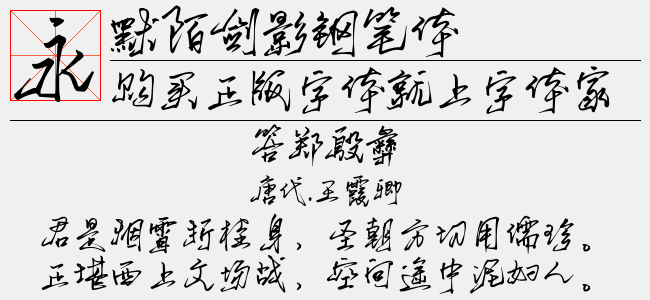 永
默陌剑影钢笔体
购买正版字体就上字体家
答郑殷彝
唐代.王霞卿
君是烟霄折桂身，圣朝方切用儒珍。
正堪西上文场战，空向途中泥妇人。